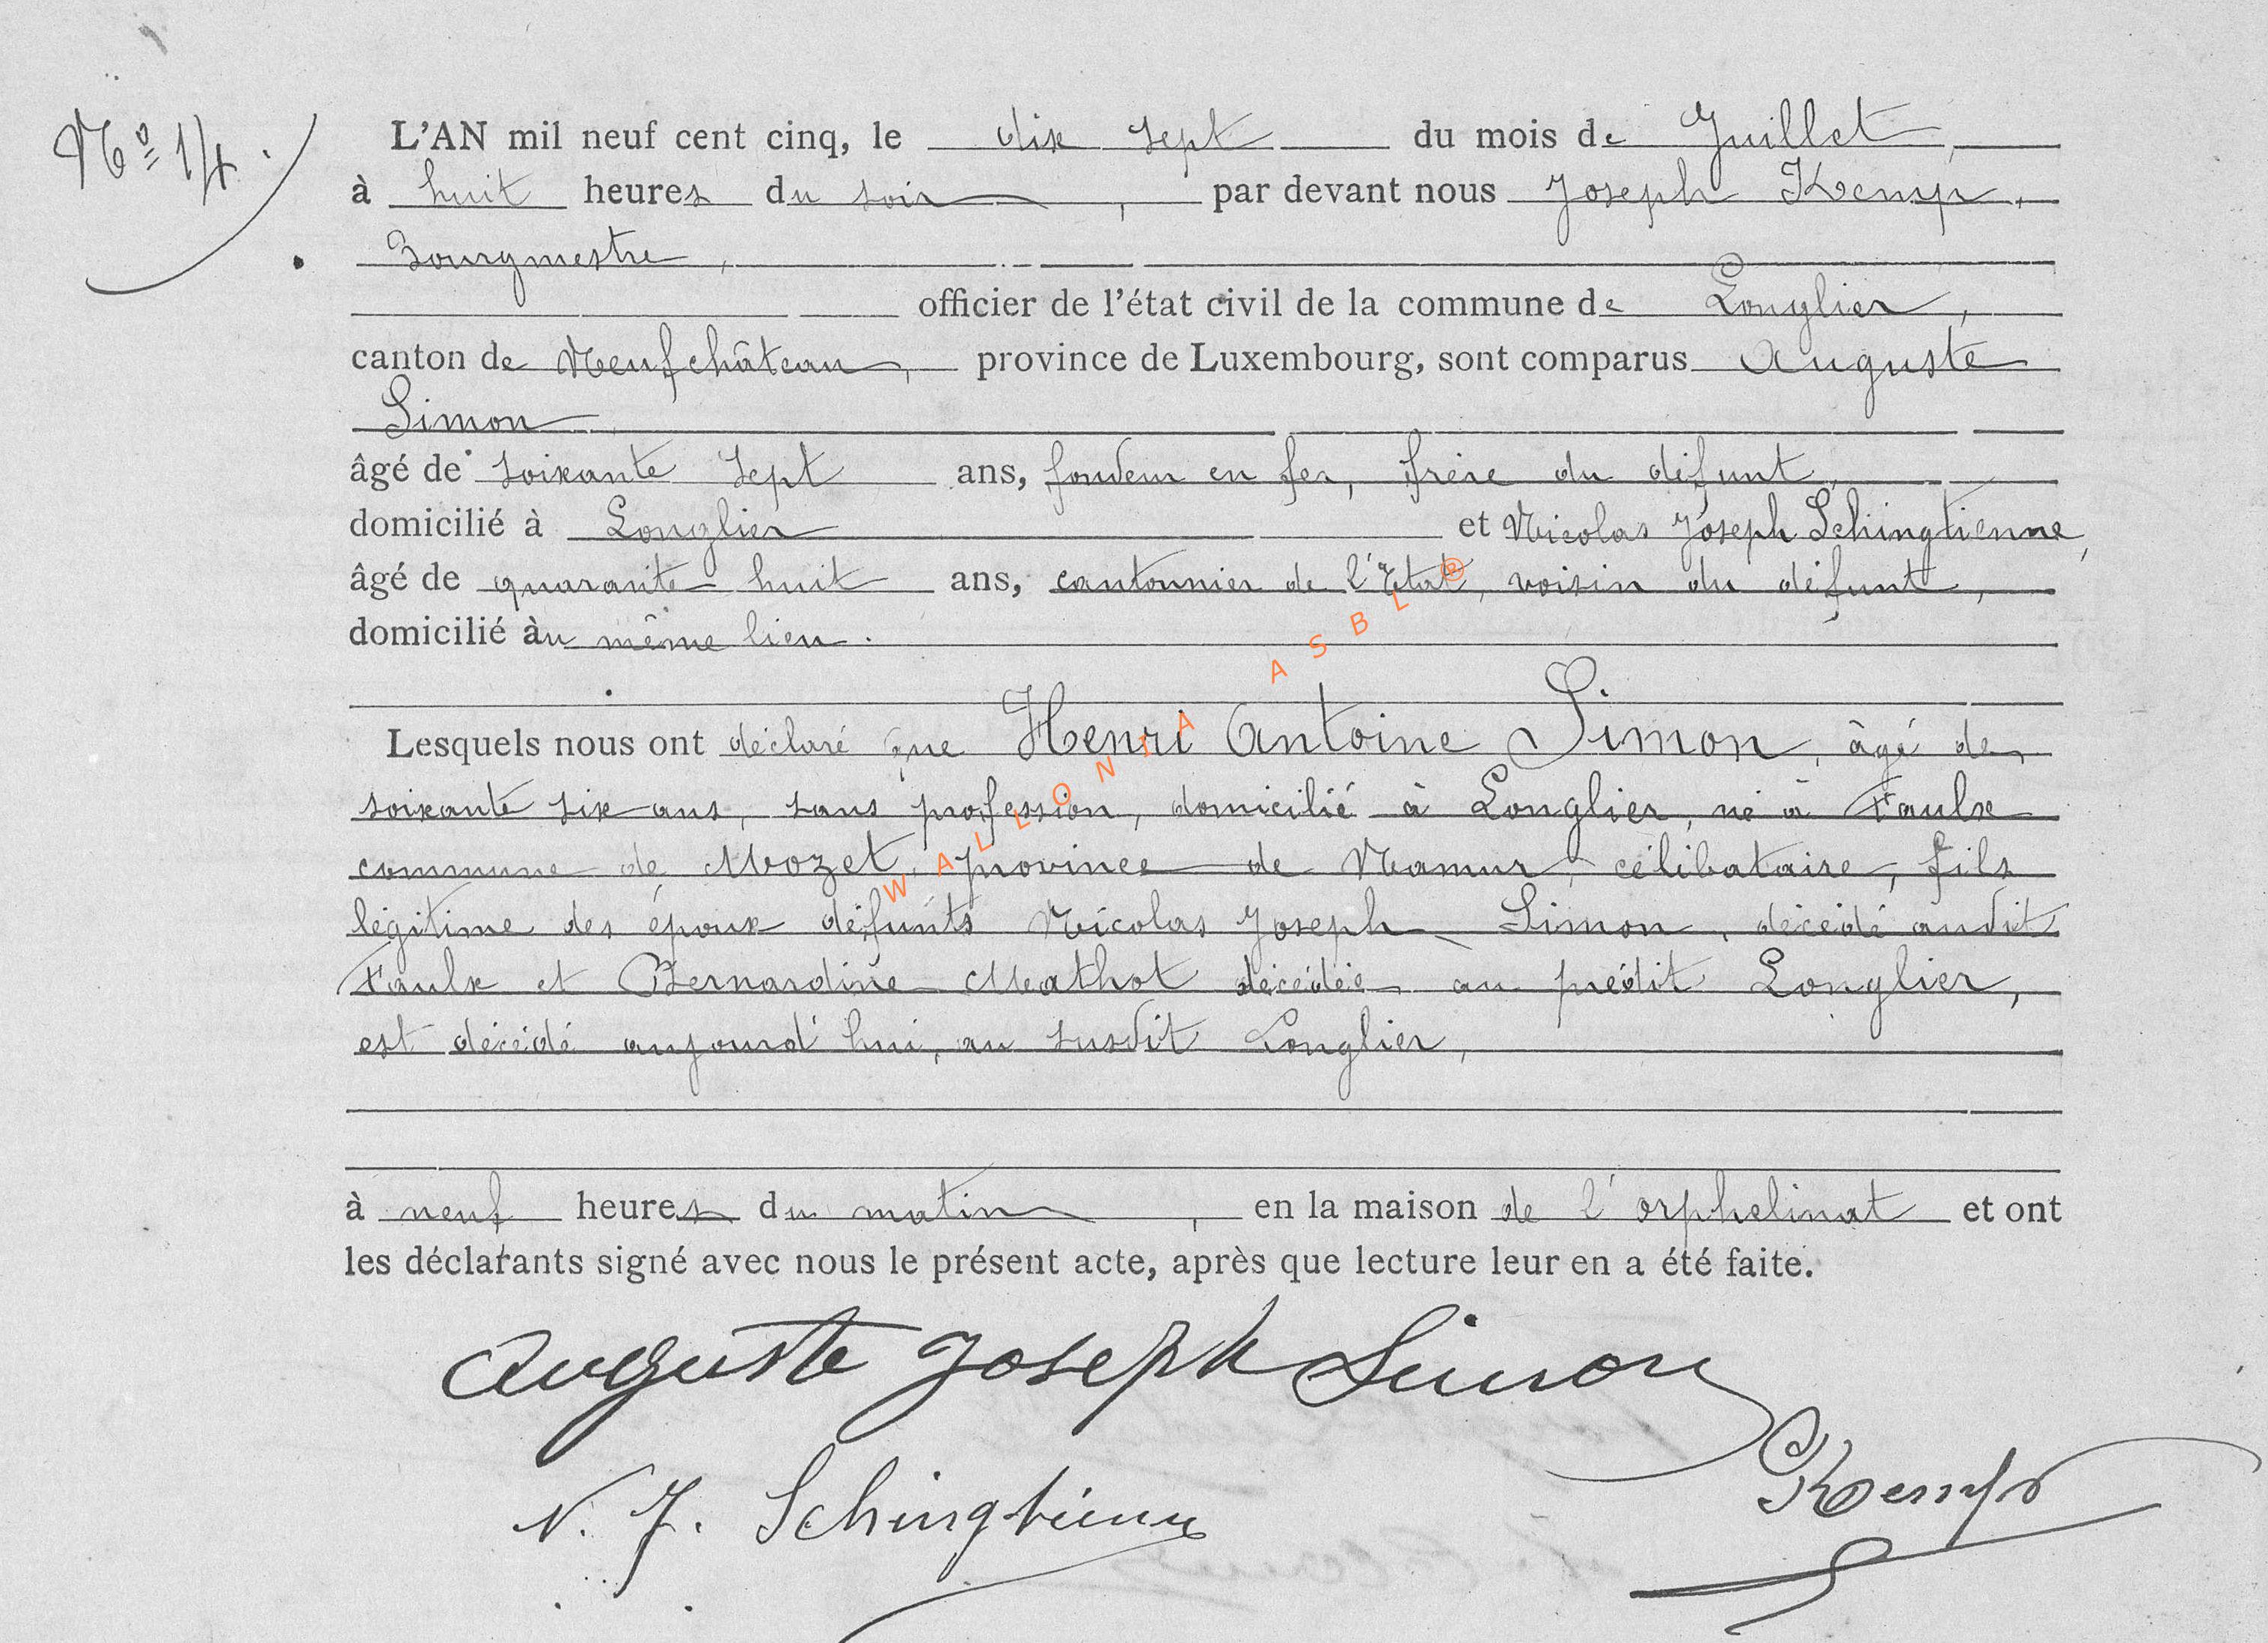 Nº 14.
L'AN mil neuf cent cinq, le dix sept du mois de Juillet,
à huit heures du soir, par devant nous Joseph Kemp,
Bourgmestre,
officier de l'état civil de la commune de Longlier,
canton de Neufchâteau, province de Luxembourg, sont comparus Auguste
Simon
âgé de soixante sept ans, fondeur en fer, frère du défunt,
domicilié à Longlier et Nicolas Joseph Schingtienne,
âgé de quarante-huit ans, cantonnier de l'Etat, voisin du défunt,
domicilié au même lieu.
Lesquels nous ont déclaré que Henri Antoine Simon, âgé de
soixante six ans, sans profession, domicilié à Longlier, né à Faulx
commune de Mozet, province de Namur, célibataire, fils
légitime des époux défunts Nicolas Joseph Simon, décédé audit
Faulx et Bernardine Mathot décédée au prédit Longlier,
est décédé aujourd'hui, au susdit Longlier,
à neuf heures du matin, en la maison de l'orphelinat et ont
les déclarants signé avec nous le présent acte, après que lecture leur en a été faite.
Auguste Joseph Simon
N. J. Schingtienne
Kemp
WALLONIA ASBL ®